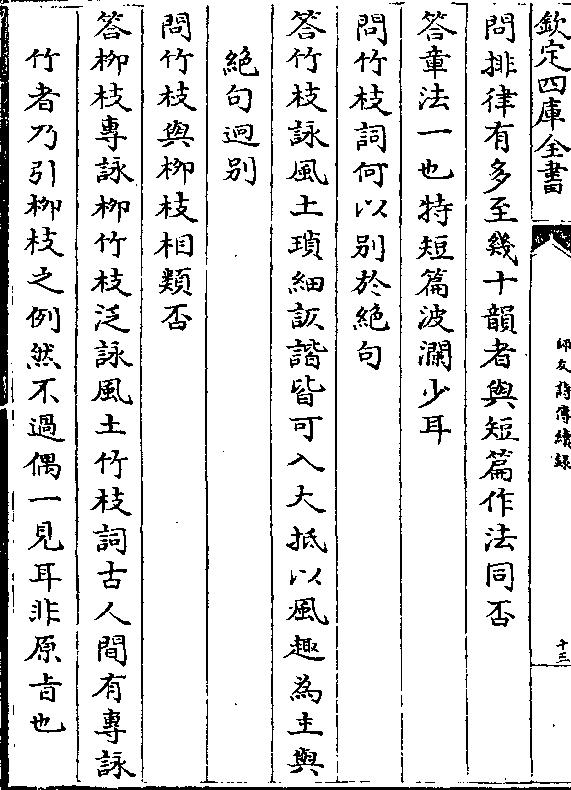 欽定四庫全書
師友詩傳續錄
十三
問排律有多至幾十韻者與短篇作法同否
答章法一也特短篇波瀾少耳
問竹枝詞何以别於絶句
答竹枝詠風土瑣細詼諧皆可入大抵以風趣為主與
絶句迥别
問竹枝與柳枝相類否
答柳枝專詠柳竹枝泛詠風土竹枝詞古人間有專詠
竹者乃引柳枝之例然不過偶一見耳非原旨也